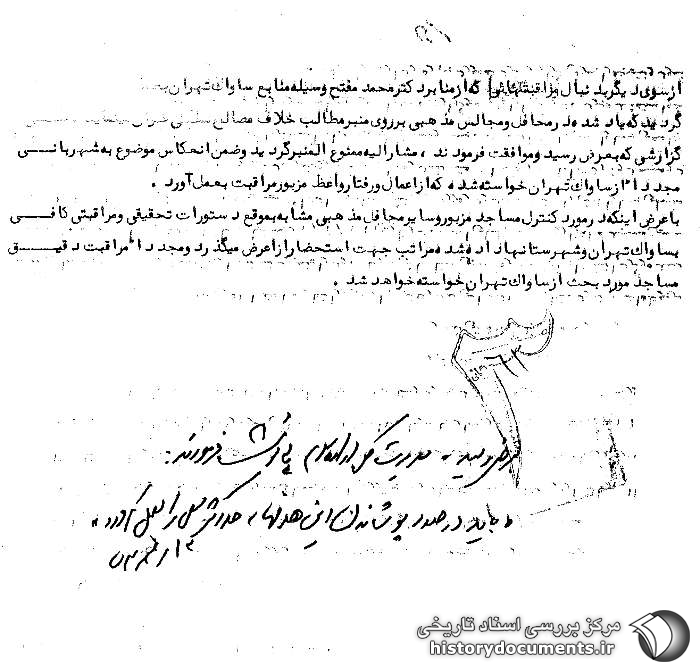 ازسوی دیگر بدنبال مراقبتهائی که از منابر دکتر محمد مفتح وسیله منابع ساواک تهران بعمل
گردید که یاد شده در محافل و مجالس مذهبی بر روی منبر مطالب خلاف مصالح
گزارشی که بعرض رسید و موافقت فرمودند ، مشارالیه ممنوع المنبر گردید و ضمن انعکاس موضوع به شهربانی
مجددا از ساواک تهران خواسته شده که از اعمال و رفتار واعظ مزبور مراقبت بعمل آورد .
با عرض اینکه در مورد کنترل مساجد مزبور و سایر محافل مذهبی مشابه بموقع دستورات تحقیقی و مراقبتی کافی
بساواک تهران و شهرستانها داده شده مراتب جهت استحضار از عرض میگذرد و مجددا مراقبت دقیق
مساجد مورد بحث از ساواک تهران خواسته خواهد شد .
بعرض رسید مدیریت کل اداره سوم پی نوشت فرمودند :
باید در صدد پوشاندن این هدفها حداکثر سعی را بعمل آورد .
مرکز بررسی اسناد تاریخی
historydocuments.ir